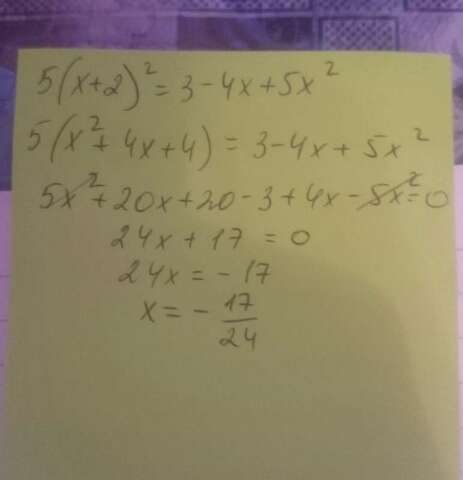 5(x+2)² = 3 - 4x + 5x²
5(x² + 4x + 4) = 3 - 4x + 5x²
5x² + 20x + 20 - 3 + 4x - 5x² = 0
24x + 17 = 0
24x = - 17
x = - 17/24